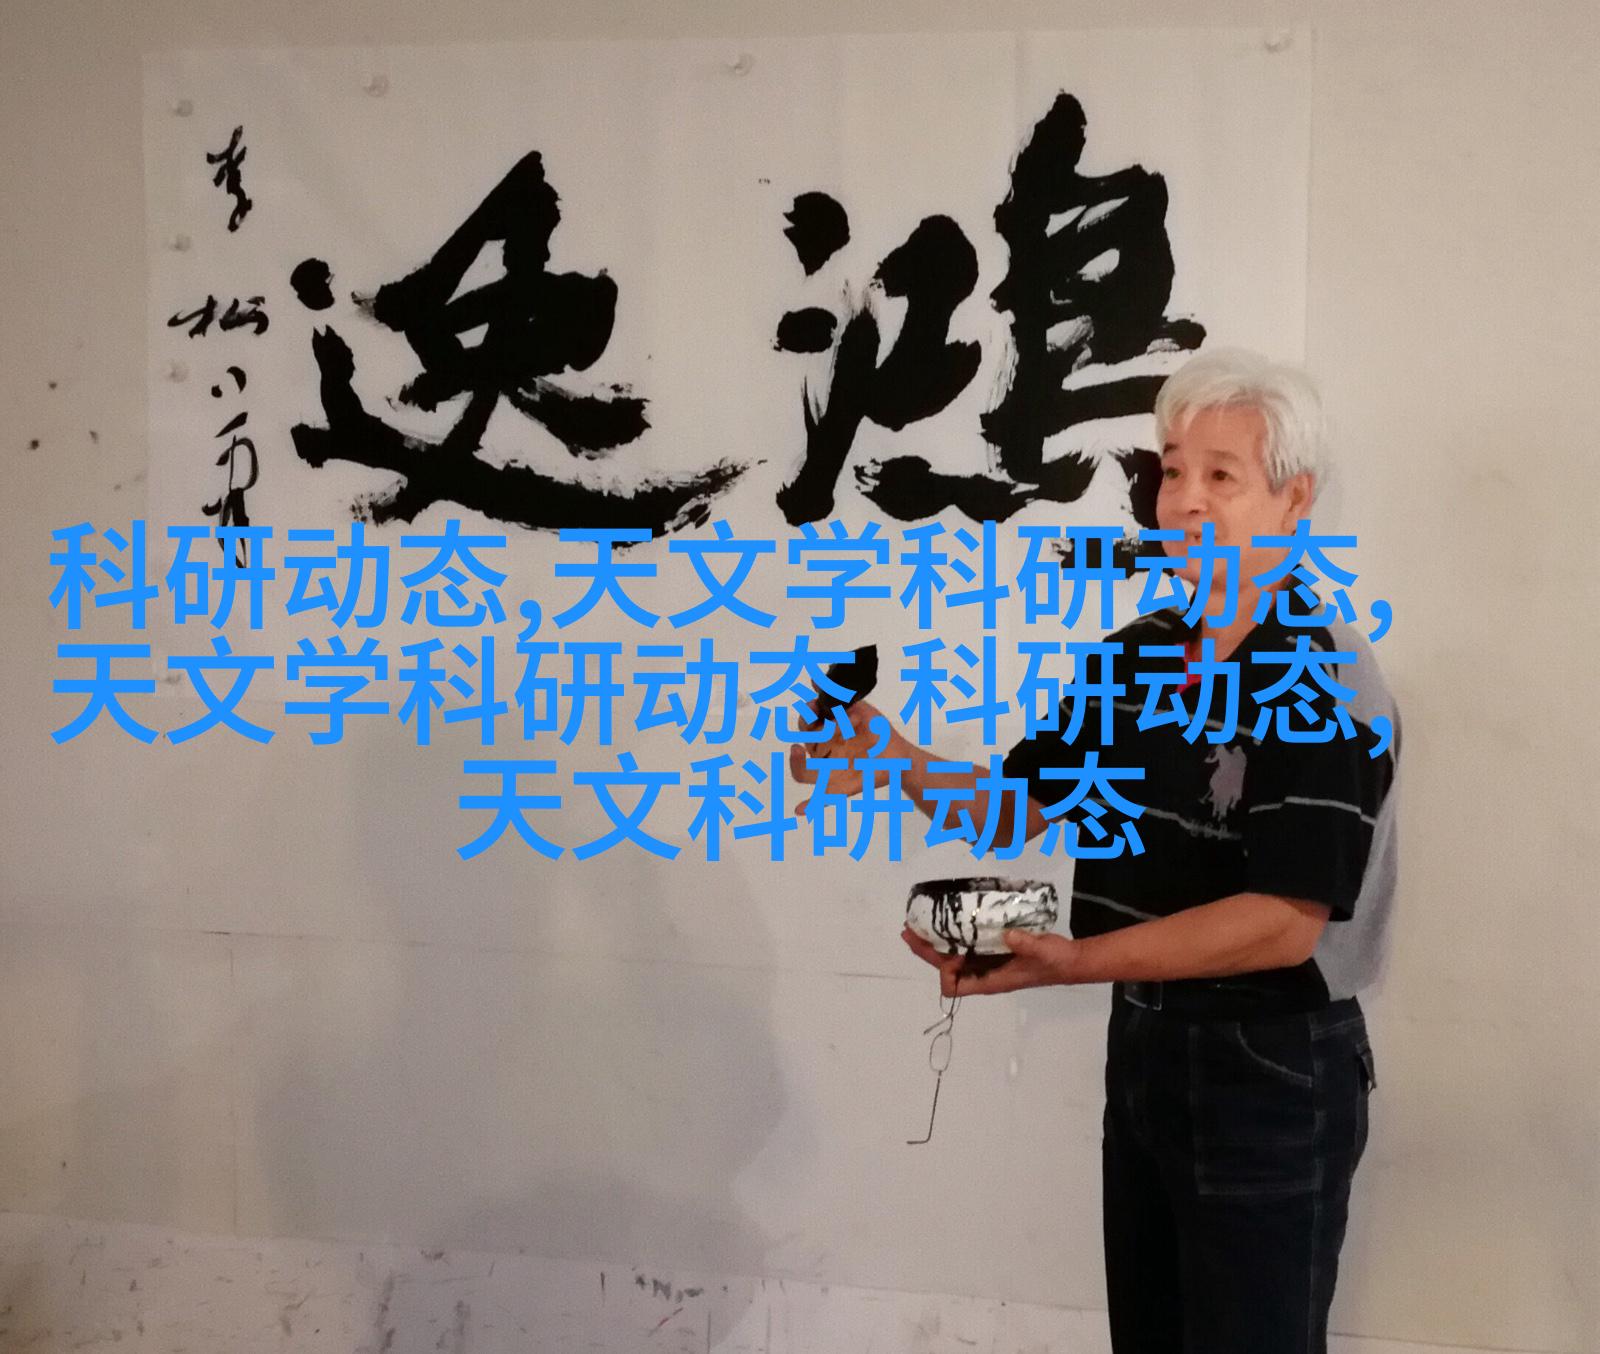 鸿逸
李松
科研动态,天文学科研动态,
天文学科研动态,科研动态,
天文科研动态